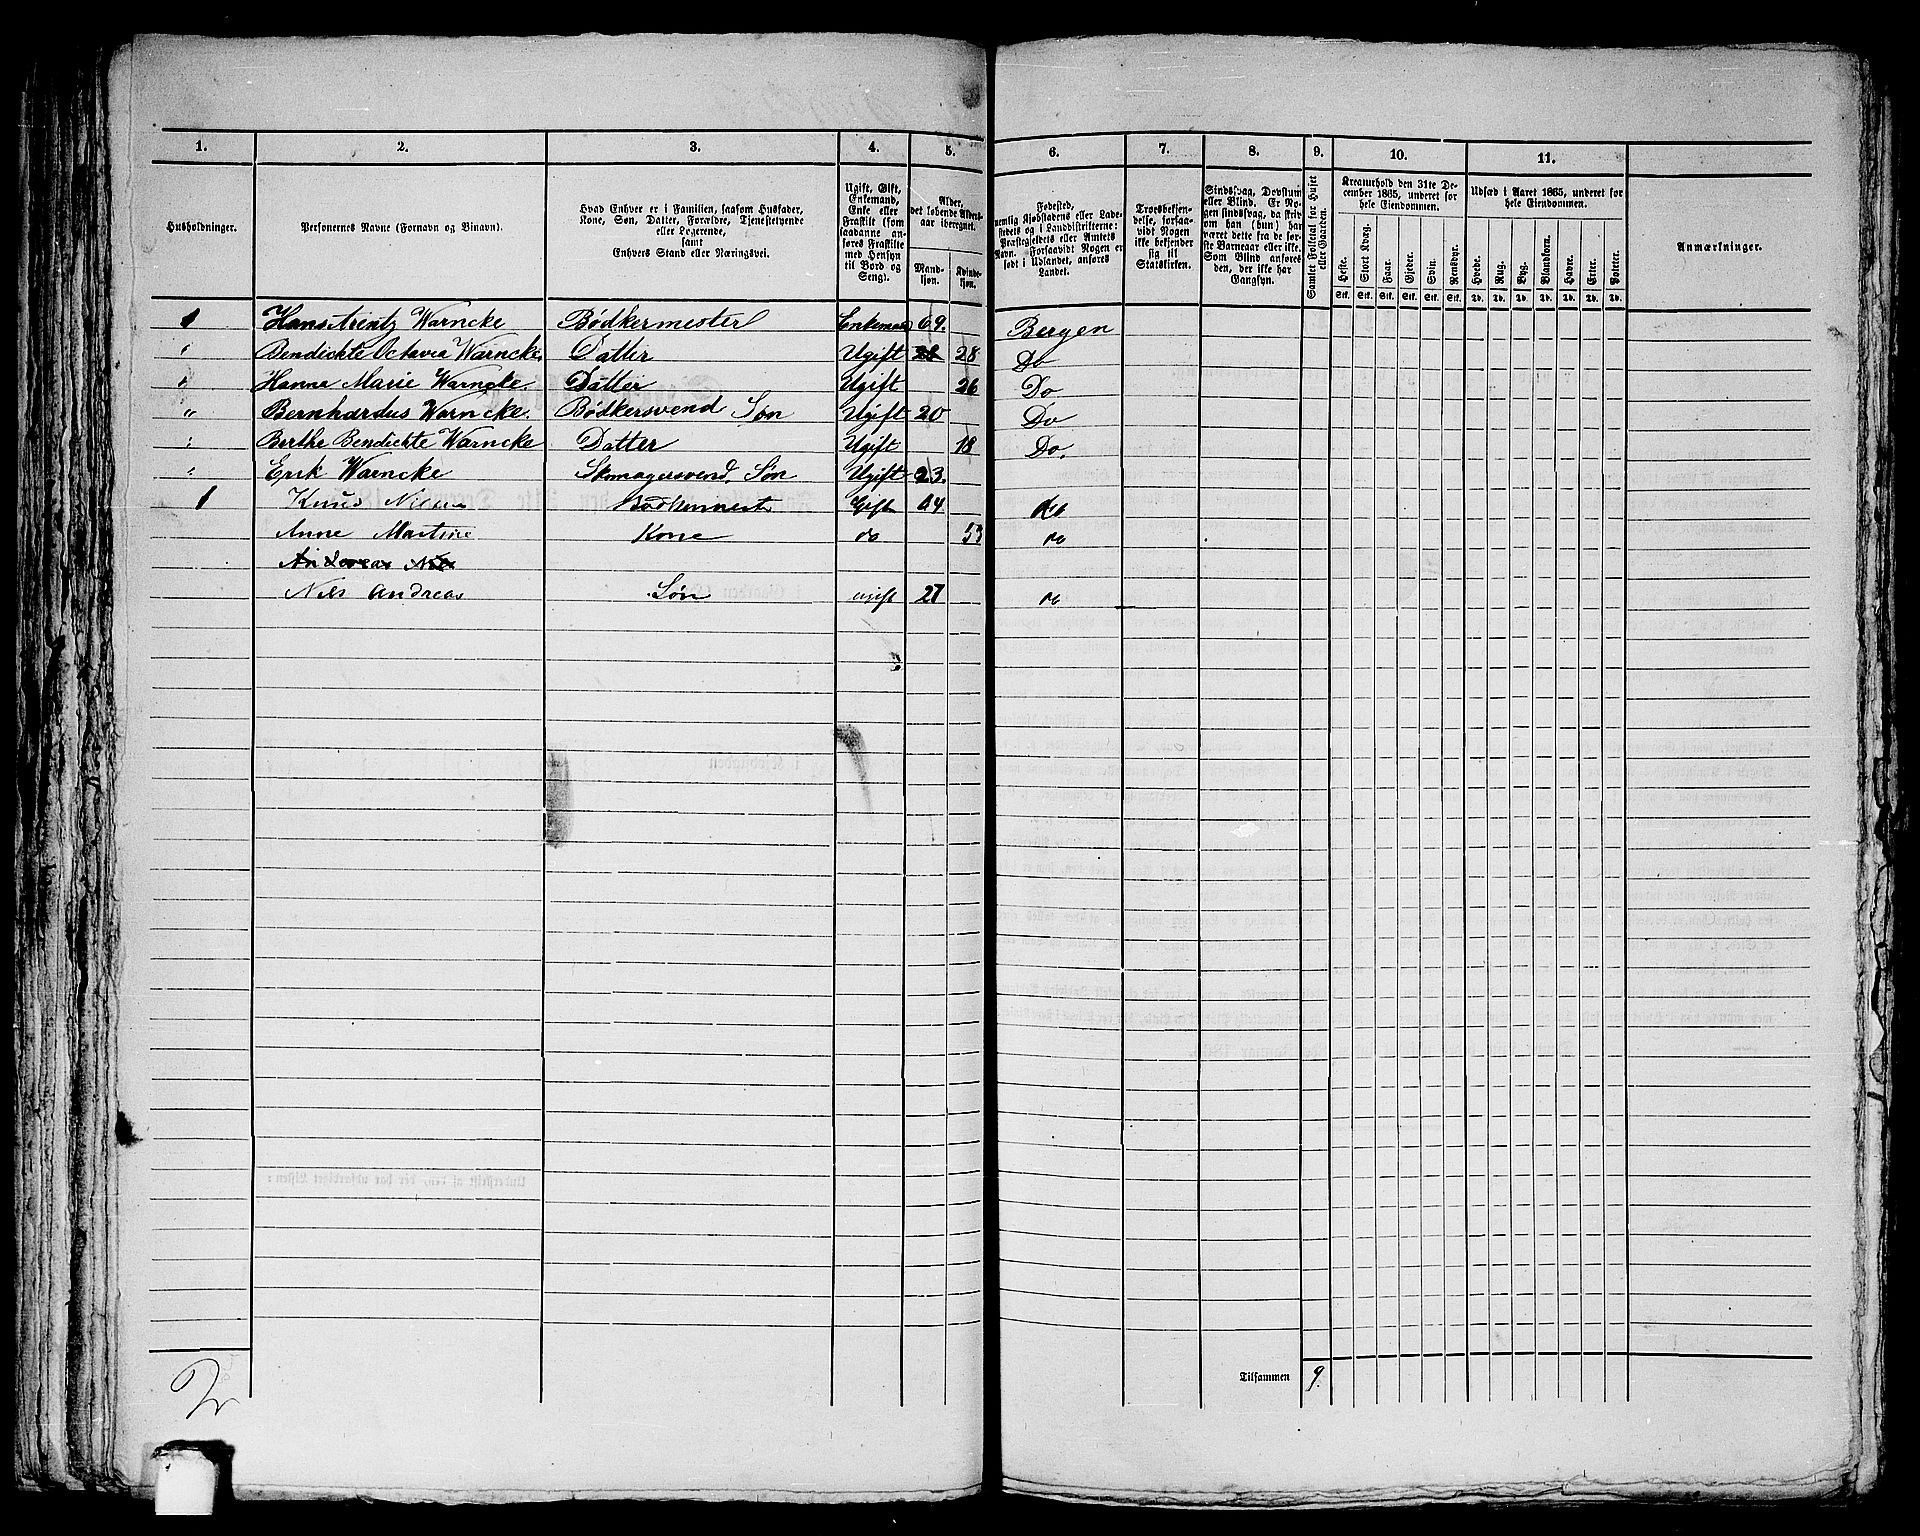 1. 2. 3. 4. 5. 6. 7. 8. 9. 10. 11.
Husholdninger.
Personernes Navne (Fornavn og Binavn).
Hvad Enhver er i Familien, saasom Husfader, Kone, Søn, Datter, Forældre, Tjenestetyende eller Logerende, samt Enhvers Stand eller Næringsvei.
Ugift, Gift, Enkemand, Enke eller Fraskilt (som saadanne anføres Fraskilte med Hensyn til Bord og Seng).
Alder, det løbende Aldersaar iberegnet.
Mandkjøn. Kvindekjøn.
Fødested, nemlig Kjøbstadens eller Ladestedets og i Landdistrikterne: Præstegjeldets eller Amtets Navn. Forsaavidt Nogen er født i Udlandet, anføres Landet.
Troesbekjendelse, forsaavidt Nogen ikke bekjender sig til Statskirken.
Sindssvag, Døvstum eller Blind. Er Nogen sindssvag, da skrives om han (hun) har været dette fra de første Barneaar eller ikke. Som Blind anføres den, der ikke har Gangsyn.
Samlet Folketal for Huset eller Gaarden.
Kreaturhold den 31te December 1865, underet for hele Eiendommen.
Heste. Stort Kvæg. Faar. Gjeder. Svin. Rensdyr.
Stk. Stk. Stk. Stk. Stk. Stk.
Udsæd i Aaret 1865, underet for hele Eiendommen.
Hvede. Rug. Byg. Blandkorn. Havre. Erter. Poteter.
Td. Td. Td. Td. Td. Td. Td.
Anmærkninger.
1 Hans Arentz Warncke Bødkermester Enkemand 69. Bergen
" Bendichte Octavia Warncke. Datter Ugift 28 28 Do
" Hanna Marie Warncke. Datter Ugift 26 Do
" Bernhardus Warncke. Bødkersvend Søn Ugift 20 Do
" Berthe Bendichte Warncke Datter Ugift 18 Do.
" Erik Warncke Skomagersvend, Søn Ugift 23.
1 Knud Nilsen Bødkermest Gift 64 do
Anne Martine Kone do 53 do
Andereas Nils
Nils Andreas Søn ugift 27 do
Tilsammen 9.
2